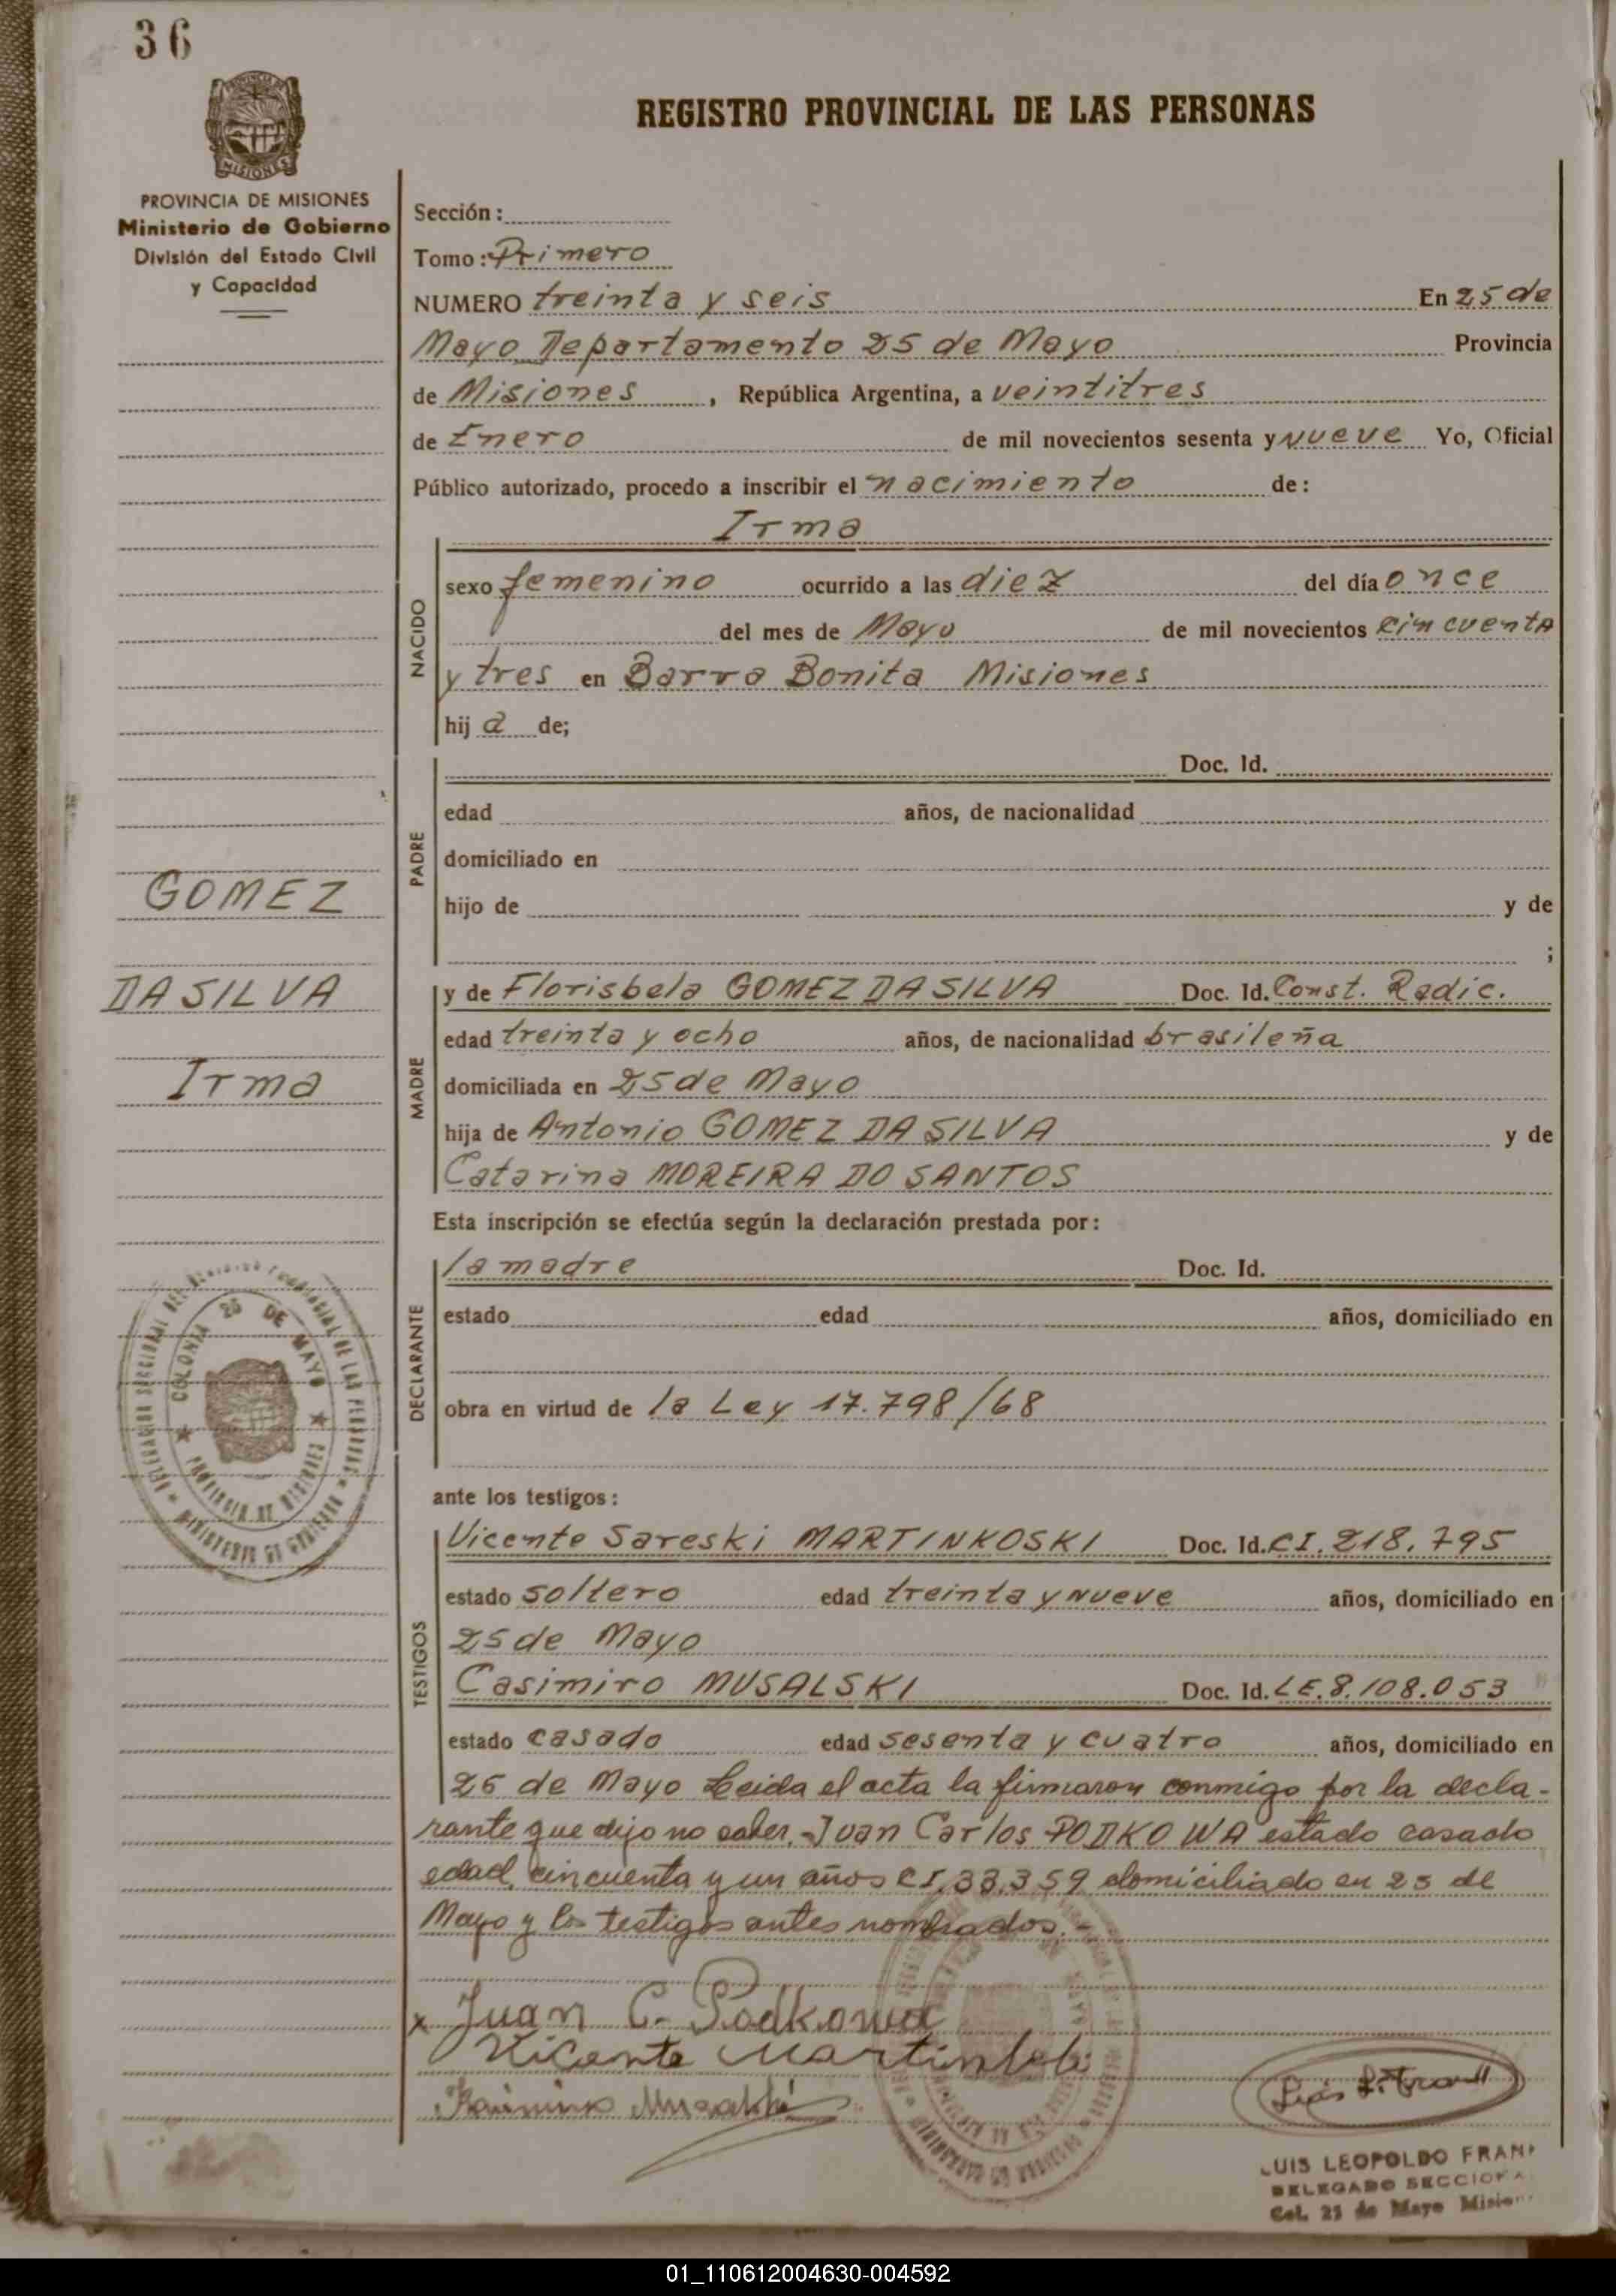 36
REGISTRO PROVINCIAL DE LAS PERSONAS
MISIONES
PROVINCIA DE MISIONES
Ministerio de Gobierno
División del Estado Civil
y Capacidad
Sección:
Tomo: Primero
NUMERO treinta y seis En 25 de
Mayo Departamento 25 de Mayo Provincia
de Misiones, República Argentina, a veintitres
de Enero de mil novecientos sesenta y nueve Yo, Oficial
Público autorizado, procedo a inscribir el nacimiento de:
Irma
NACIDO
sexo femenino ocurrido a las diez del día once
del mes de Mayo de mil novecientos cincuenta
y tres en Barra Bonita Misiones
hija de;
PADRE
Doc. Id.
edad años, de nacionalidad
domiciliado en
hijo de y de
;
GOMEZ
DA SILVA
Irma
MADRE
y de Florisbela GOMEZ DA SILVA Doc. Id. Const. Radic.
edad treinta y ocho años, de nacionalidad brasileña
domiciliada en 25 de Mayo
hija de Antonio GOMEZ DA SILVA y de
Catarina MOREIRA DO SANTOS
Esta inscripción se efectúa según la declaración prestada por:
DECLARANTE
la madre Doc. Id.
estado edad años, domiciliado en
obra en virtud de la Ley 17.798/68
COLONIA 25 DE MAYO
PROVINCIA DE MISIONES
MINISTERIO DE GOBIERNO
ante los testigos:
TESTIGOS
Vicente Sareski MARTINKOSKI Doc. Id. CI. 218.795
estado soltero edad treinta y nueve años, domiciliado en
25 de Mayo
Casimiro MUSALSKI Doc. Id. LE. 8.108.053
estado casado edad sesenta y cuatro años, domiciliado en
25 de Mayo Leida el acta la firmaron conmigo por la decla-
rante que dijo no saber.- Juan Carlos PODKOWA estado casado
edad cincuenta y un años CI. 33.359 domiciliado en 25 de
Mayo y los testigos antes nombrados.-
x Juan C. Podkowa
Vicente Martinkoski
LUIS LEOPOLDO FRAN
DELEGADO SECCIONA
Col. 25 de Mayo Mision
01_110612004630-004592